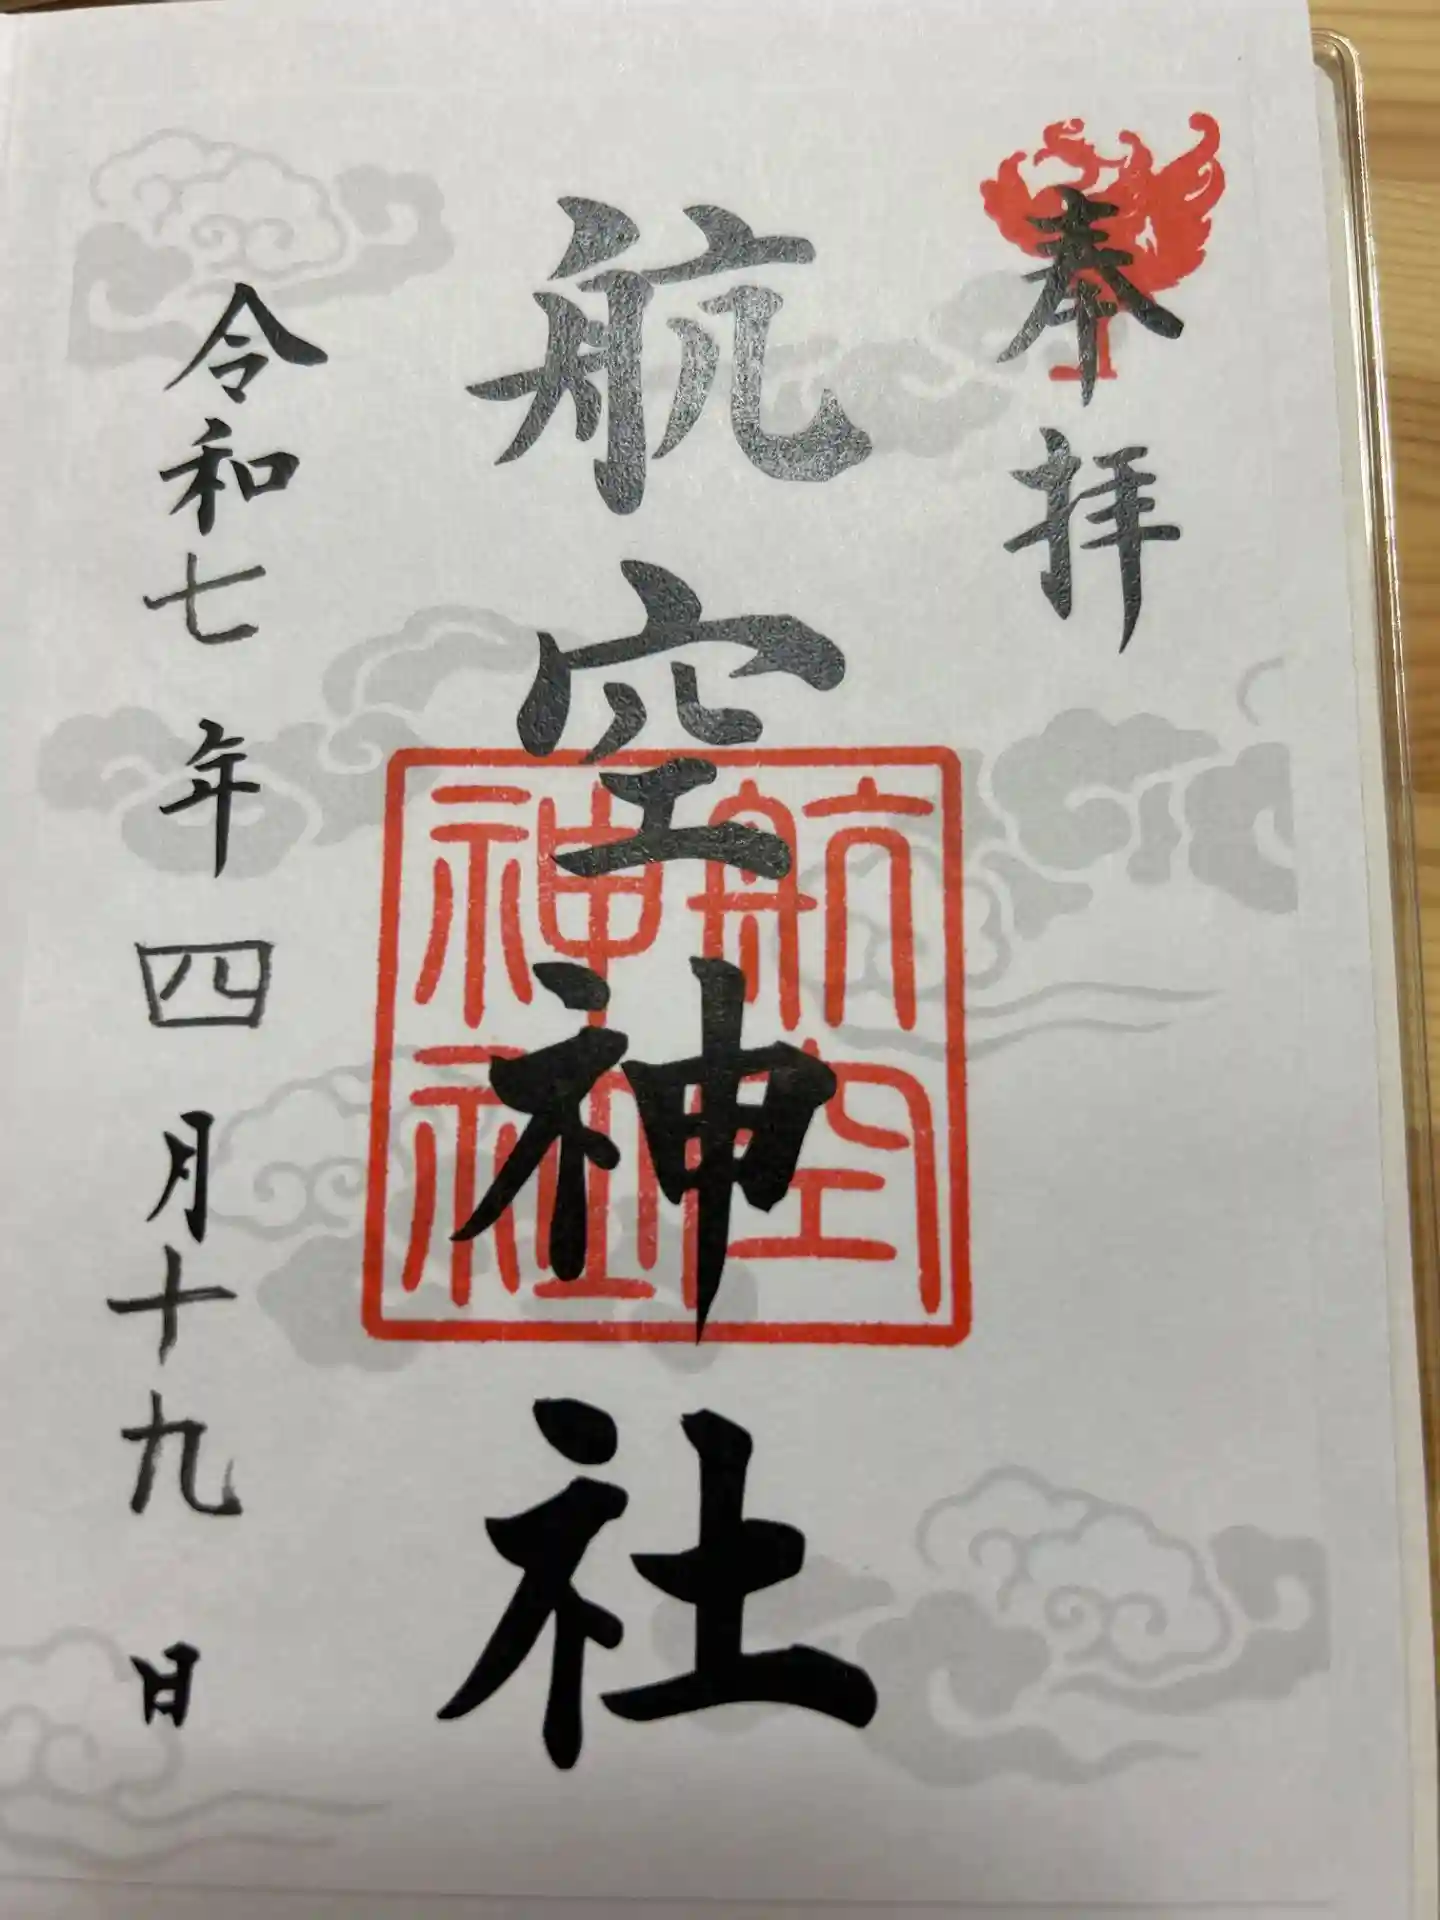 奉拝
航空神社
航空神社
令和七年四月十九日